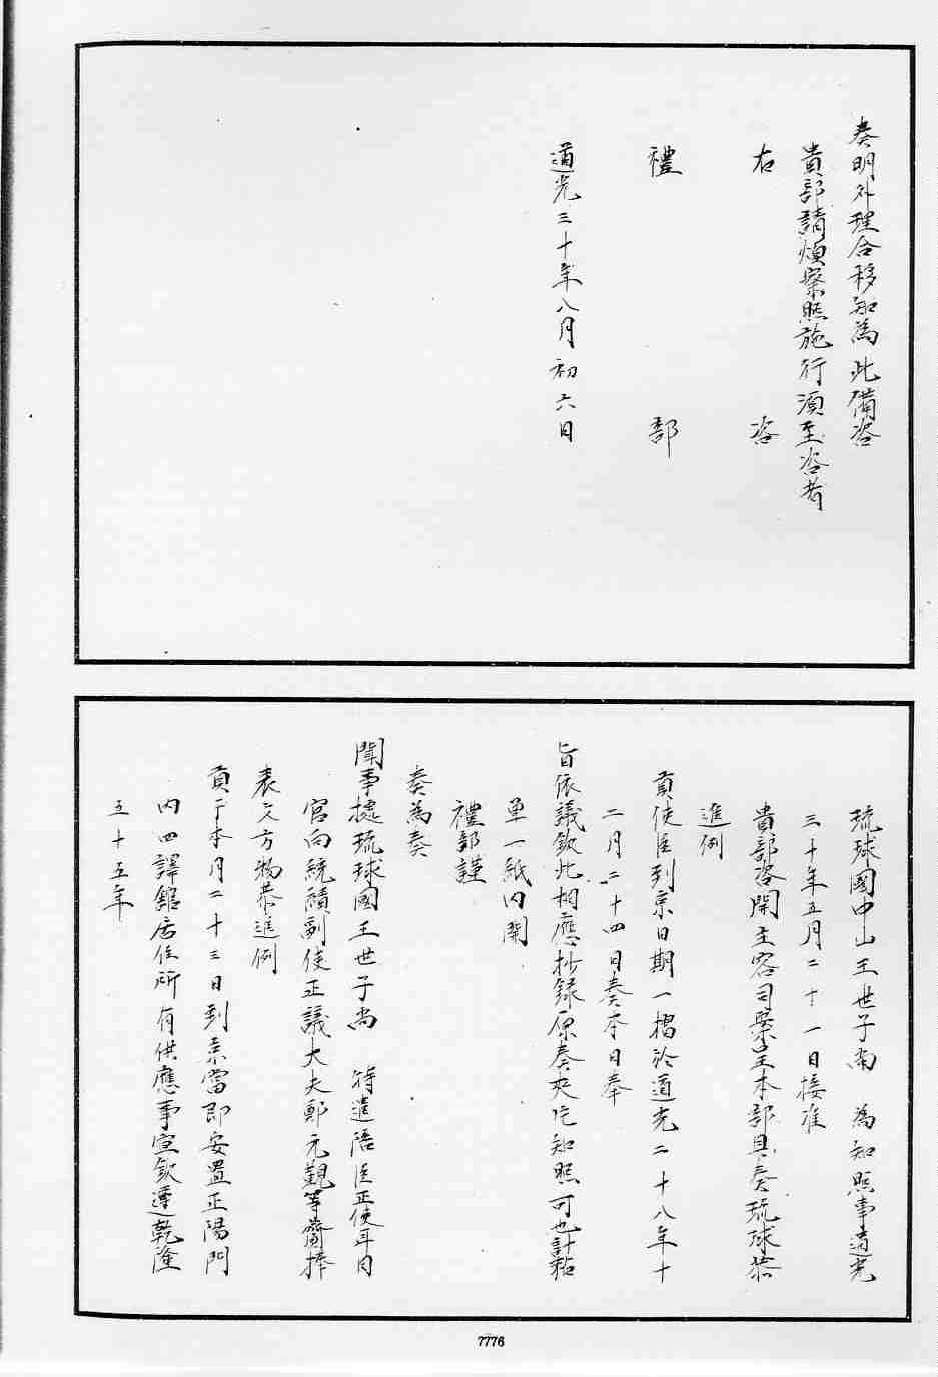 奏明外理合移知為此備咨
貴部請煩察照施行須至咨者
右 咨
禮 部
道光三十年八月初六日
琉球國中山王世子尚 為知照事道光
三十年五月二十一日接准
貴部咨開主客司案呈本部具奏琉球恭
進例
貢使臣到京日期一摺於道光二十八年十
二月二十四日奏本日奉
旨依議欽此相應抄錄原奏夾片知照可也計粘
單一紙內開
禮部謹
奏為奏
聞事據琉球國王世子尚 特遣陪臣正使耳目
官向統績副使正議大夫鄭元觀等齎捧
表文方物恭進例
貢于本月二十三日到京當即安置正陽門
內四譯館居住所有供應事宜欽遵乾隆
五十五年
7776